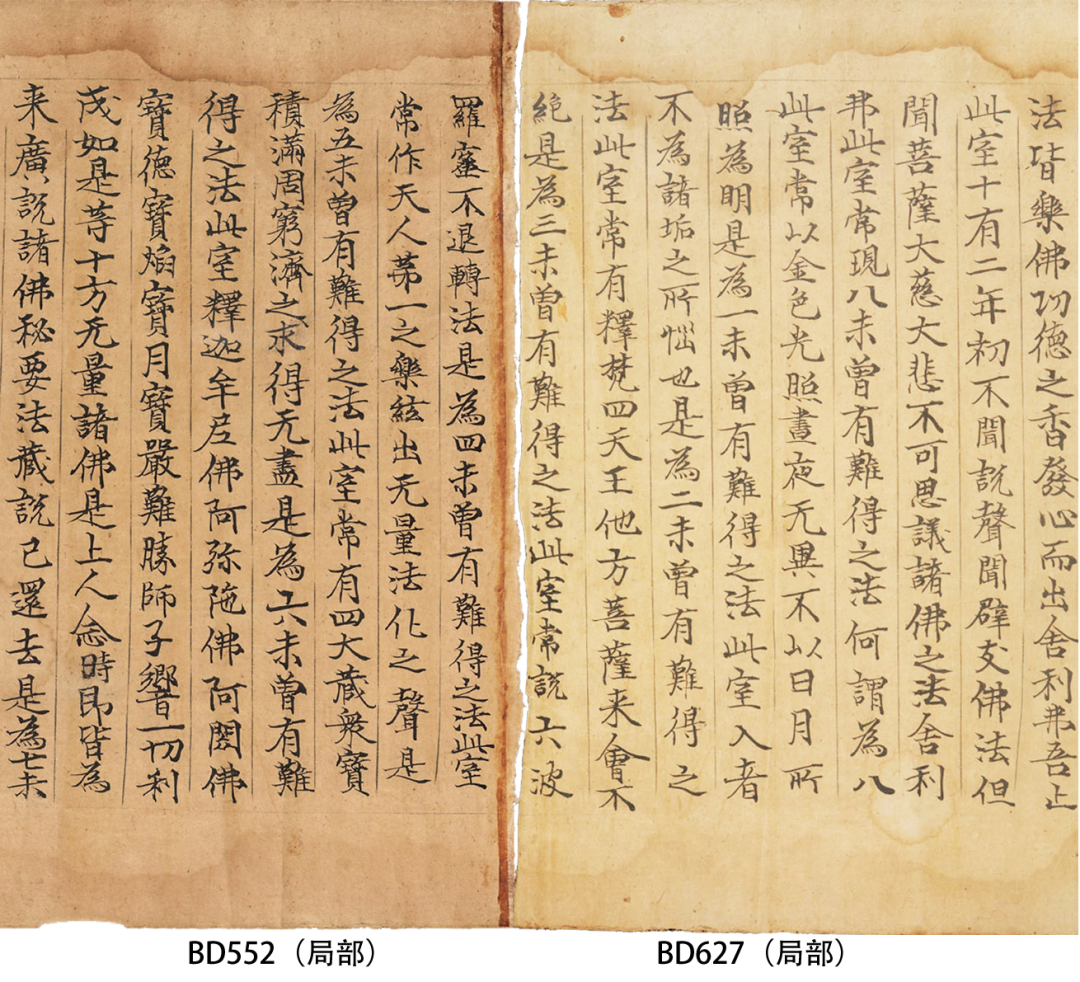 法皆樂佛功德之香發心而出舍利弗吾止
此室十有二年初不聞說聲聞辟支佛法但
聞菩薩大慈大悲不可思議諸佛之法舍利
弗此室常現八未曾有難得之法何謂為八
此室常以金色光照晝夜无異不以日月所
照為明是為一未曾有難得之法此室入者
不為諸垢之所惱也是為二未曾有難得之
法此室常有釋梵四天王他方菩薩来會不
絕是為三未曾有難得之法此室常說六波
羅蜜不退轉法是為四未曾有難得之法此室
常作天人苐一之樂絃出无量法化之聲是
為五未曾有難得之法此室常有四大藏衆寶
積滿周窮濟之求得无盡是為六未曾有難
得之法此室釋迦牟尼佛阿弥陁佛阿閦佛
寶德寶焰寶月寶嚴難勝師子響一切利
茂如是等十方无量諸佛是上人念時即皆為
来廣說諸佛秘要法藏說已還去是為七未
BD552（局部）
BD627（局部）